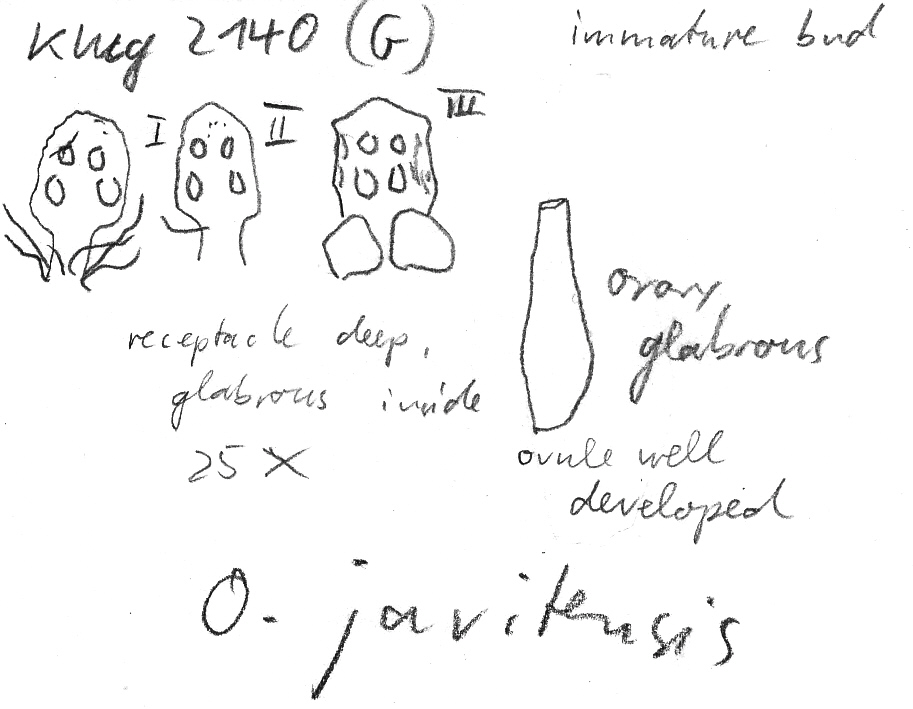 Klug 2140 (G)
immature bud
I II III
receptacle deep,
glabrous inside
25 X
ovary,
glabrous
ovule well
developed
O. javitensis